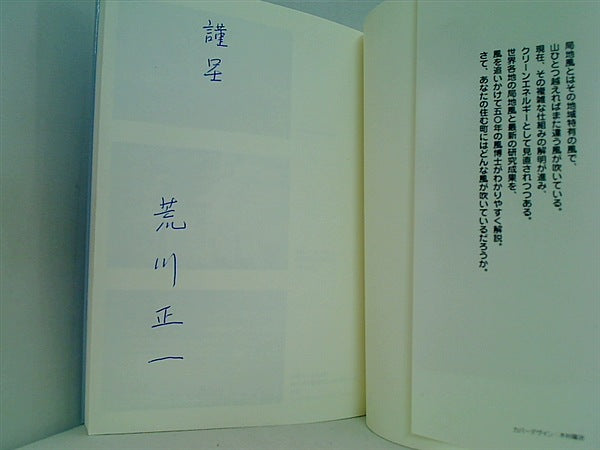 局地風とはその地域特有の風で、
山ひとつ越えればまた違う風が吹いている。
現在、その複雑な仕組みの解明が進み、
クリーンエネルギーとして見直されつつある。
世界各地の局地風と最新の研究成果を、
風を追いかけて五〇年の風博士がわかりやすく解説。
さて、あなたの住む町にはどんな風が吹いているだろうか。
カバーデザイン
謹呈
荒川正一